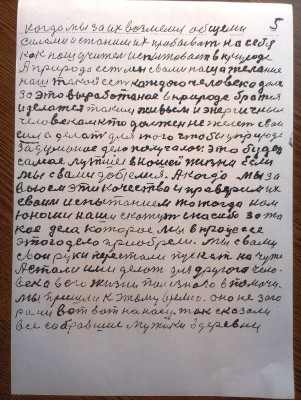 5
когда мы за их возмемся общими
силами и станим их пробыват на себя
как наш учител испытовает в природе
А природа ест мы с вами наша желание
наш такой ест каждого человека дал
за это выработаное в природе братся
и делатся таким живым и энергичным
человекам кто должен не жалет сваи
сил а делат для того чтобы у природе
задуманое дело получалос. Это будет
самае лутшее в нашей жизни если
мы с вами добемся. А когда мы за
воюем эти качество и праверим их
своим испытанием то тогда нам
юноши наши скажут спасиба за та
кое дела которое мы в процесе
этого дело приобрели. мы с вами
свои руки перестали пускат на чужо
А стали ими делат для другога чело-
века в его жизни полезного в помочи.
мы пришли к этому время. оно не заго
рами вот вот на носу. так сказали
все собравшие мужики з деревни